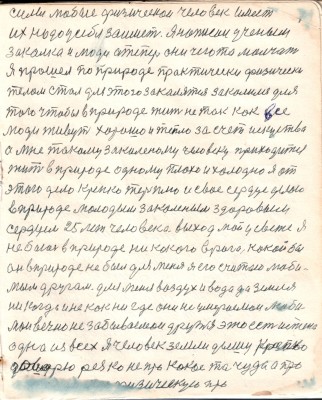 силы любые физической человек имеет
их надо себе защитет. Я написал ученым
закалка и люди а теперь они чегото молчат
Я прошел по природе практически физически
телом стал для этого закалятся закалился для
того чтобы в природе жит не так как все
люди живут хорошо и тепло за счет искуства
а мне такому закаленому человеку приходится
жит в природе одному плохо и холодно я от
этого дело крепко терплю и свое сердце делаю
в природе молодым закаленым здоровым
сердцем 25 лет человека выход мой у свете я
не боюс в природе ни какого врага, какой бы
он в природе не был для меня я его считаю люби-
мым другам. для меня воздух и вода да земля
никогда и не как ни где они не умераемая люби
мыи вечно не забываемой друзя это ест истена
одна из всех я человек земли дышу крепко
говорю резко не про какое та чуда а про
физическую про